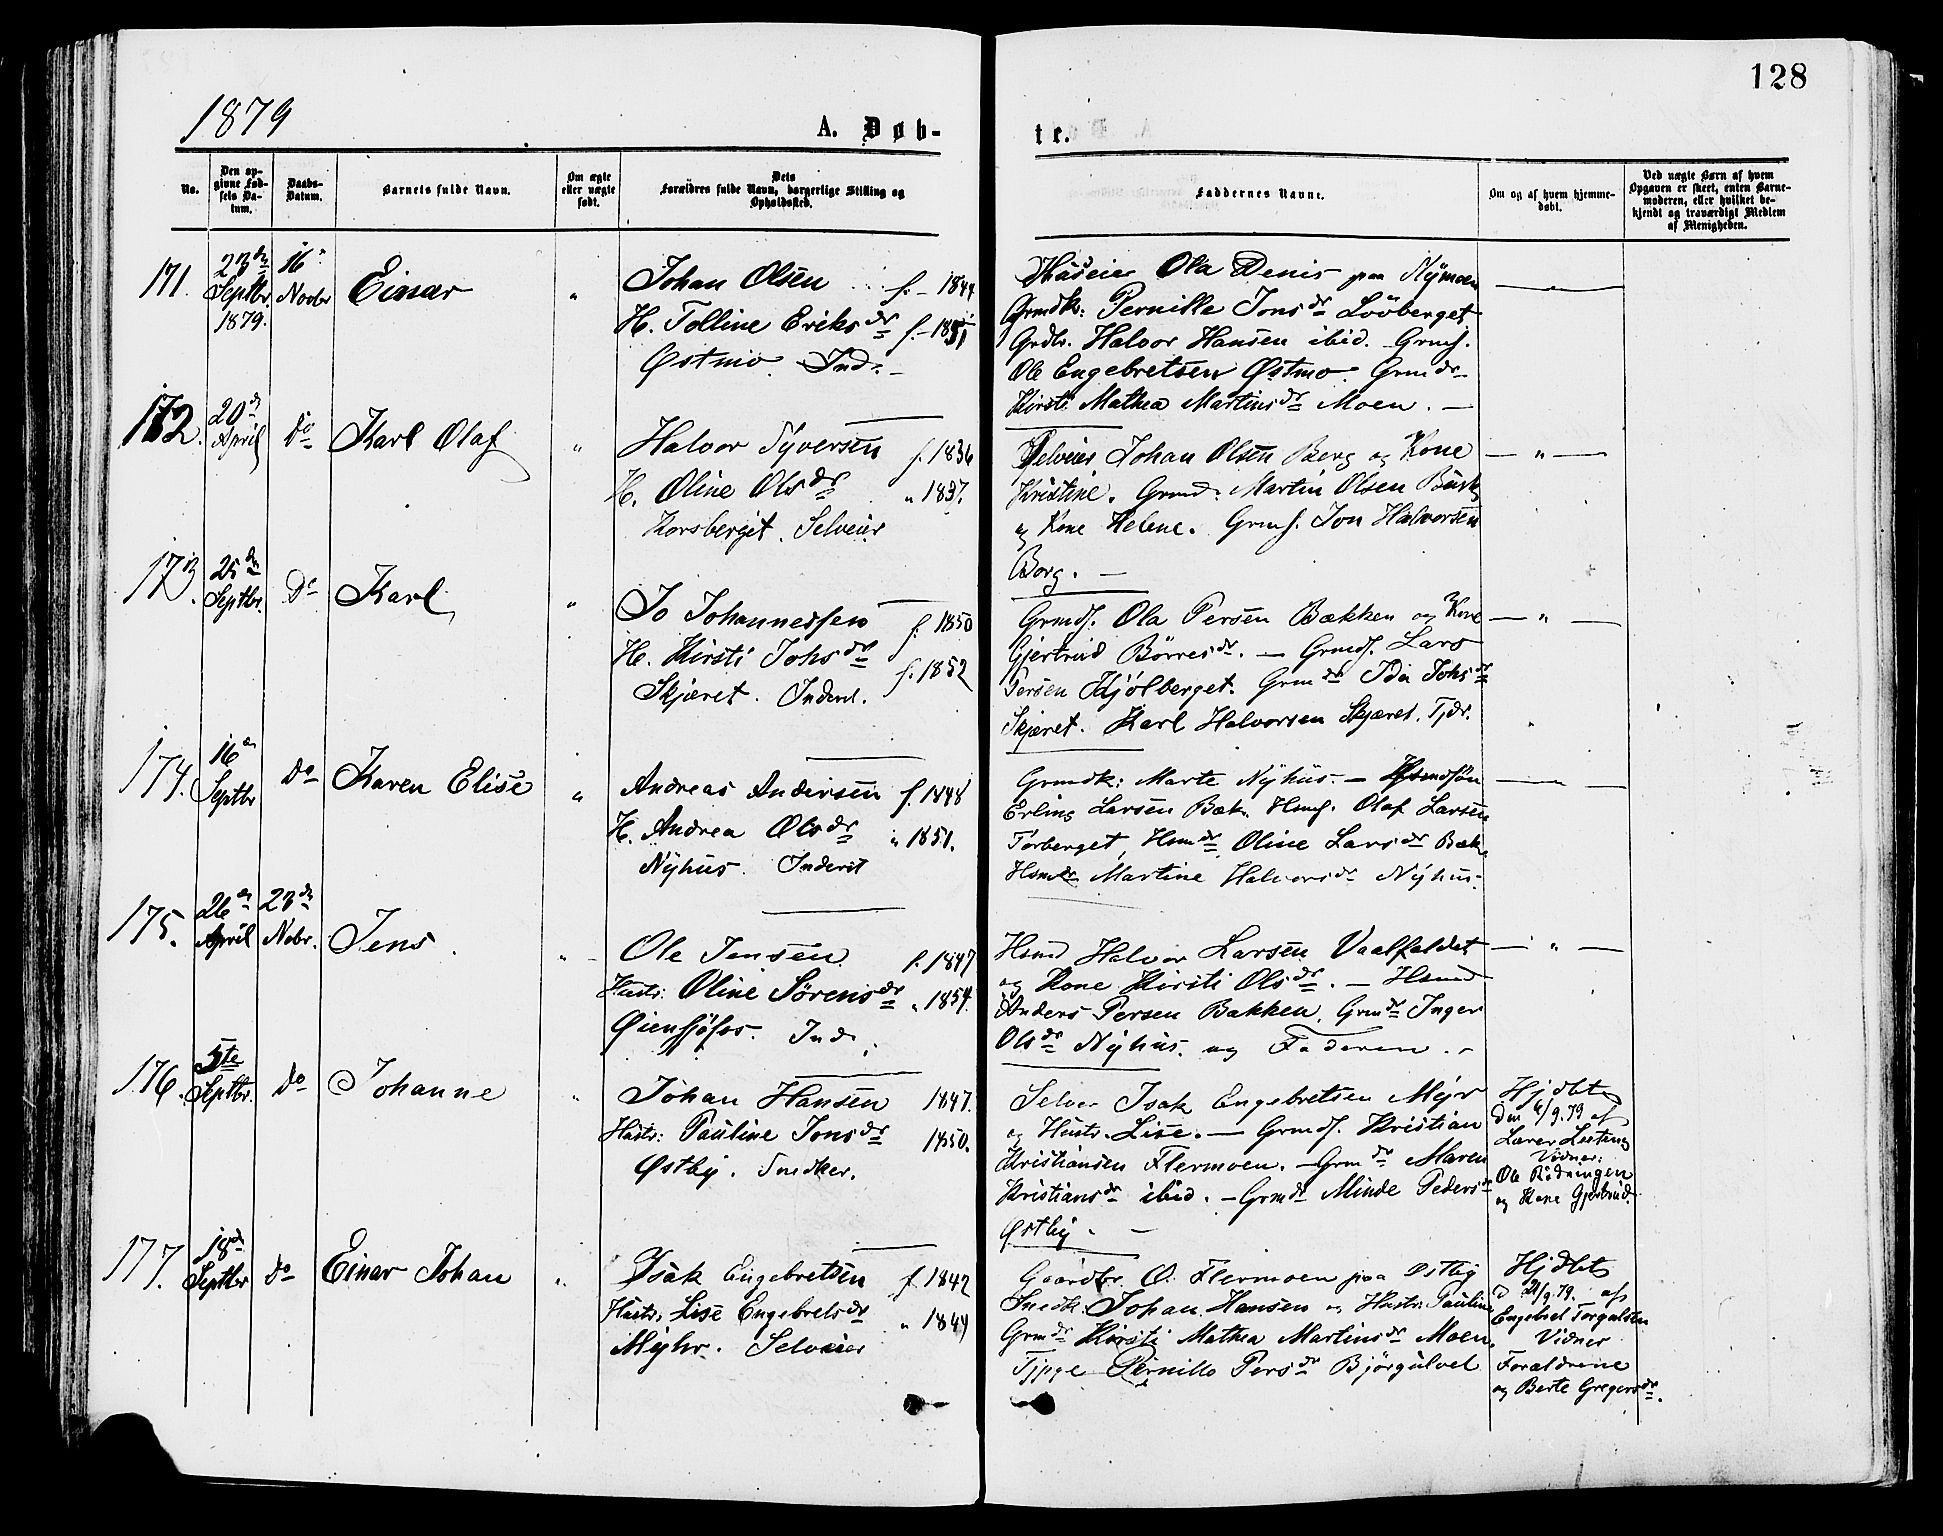 128
1879
A. Døb-
te.
No.
Den op-
givne Fød-
sels Da-
tum.
Daabs-
Datum.
Barnets fulde Navn.
Om ægte
eller uægte
født.
Dets
Forældres fulde Navn, borgerlige Stilling og
Opholdssted.
Faddernes Navne.
Om og af hvem hjemme-
døbt.
Ved uægte Børn af hvem
Opgaven er skeet, enten Barne-
moderen, eller hvilket be-
kjendt og troværdigt Medlem
af Menigheden.
171.
23de
Septbr
1879.
16
Novbr
Einar
"
Johan Olsen f. 1844
H. Tolline Eriksdr f. 1851
Østmo. Ind.
Huseier Ola Denis paa Nÿmoen
Grmdk: Pernille Jonsdr Lövberget
Grdbr. Halvor Hansen ibid. Grmf.
Ole Engebretsen Østmo. Grmdr
Kirsti Mathea Martinsdr Moen. —
172.
20de
April
Do
Karl Olaf
"
Halvor Syversen f. 1836
H. Oline Olsdr " 1837.
Korsberget. Selveier
Selveier Johan Olsen Berg og Kone
Kristine. Grmd. Martin Olsen
og Kone Helene. Grmf. Jon Halvorsen
Borg. —
— " —
173.
25de
Septbr.
Do
Karl
"
Jo Johannessen f. 1850
H. Kirsti Johsdr f. 1852
Skjæret. Inderst.
Grmdf. Ola Persen Bækken og Kone
Gjertrud Börresdr. — Grmdf. Lars
Persen Kjölberget. Grmdr Ida Johsdr
Skjæret. Karl Halvorsen Skjæret. Tjdr.
— " —
174.
16de
Septbr
Do
Karen Elise
"
Andreas Andersen f. 1848
H. Andrea Olsdr " 1851.
Nÿhus. Inderst
Grmdk: Marte Nÿhus. —
Erling Larsen Bæk. Hsmf. Olaf Larsen
Torberget, Hsmdr Oline Larsdr Bæk.
Hsmdr Martine Halvorsdr Nÿhus.
175.
26de
April
23de
Nobr.
Jens
"
Ole Jensen f. 1847
Hustr: Oline Sörensdr " 1854.
Øiensjöfos. Ind.
Hsmd Halvor Larsen Vaalfaldet
og Kone Kirsti Olsdr. — Hsmd
Anders Persen Bakken. Grmdr Inger
Olsdr Nÿhus. og Faderen. —
— " —
176.
5te
Septbr.
Do
Johanne
"
Johan Hansen 1847.
Hustr: Pauline Jonsdr 1850.
Østby. Snedker.
Selver Isak Engebretsen Mÿr
og Hustr. Lise. — Grmdf. Kristian
Kristiansen Flermoen. — Grmdr Maren
Kristiansdr ibid. — Grmdr Minde Pedersdr
Østby. —
Hjdbt
den 6/9.79 af
Lærer
Vidner:
Ole Rödningen
og Kone Gjertrud.
177.
18de
Septbr
Do
Einar Johan
"
Isak Engebretsen f. 1842
Hustr. Lise Engebretsdr " 1849
Mÿhr. Selveier
Gaardbr. O. Flermoen paa Østby
Snedk. Johan Hansen og Hustr. Pauline
Grmdr Kirsti Mathea Martinsdr Moen.
Tjpge Pernille Persdr Björgulvel
Hjdbt
d 21/9.79. af
Engebret Torgalsen
Vidner
Forældrene
og Berte Gregersdr.